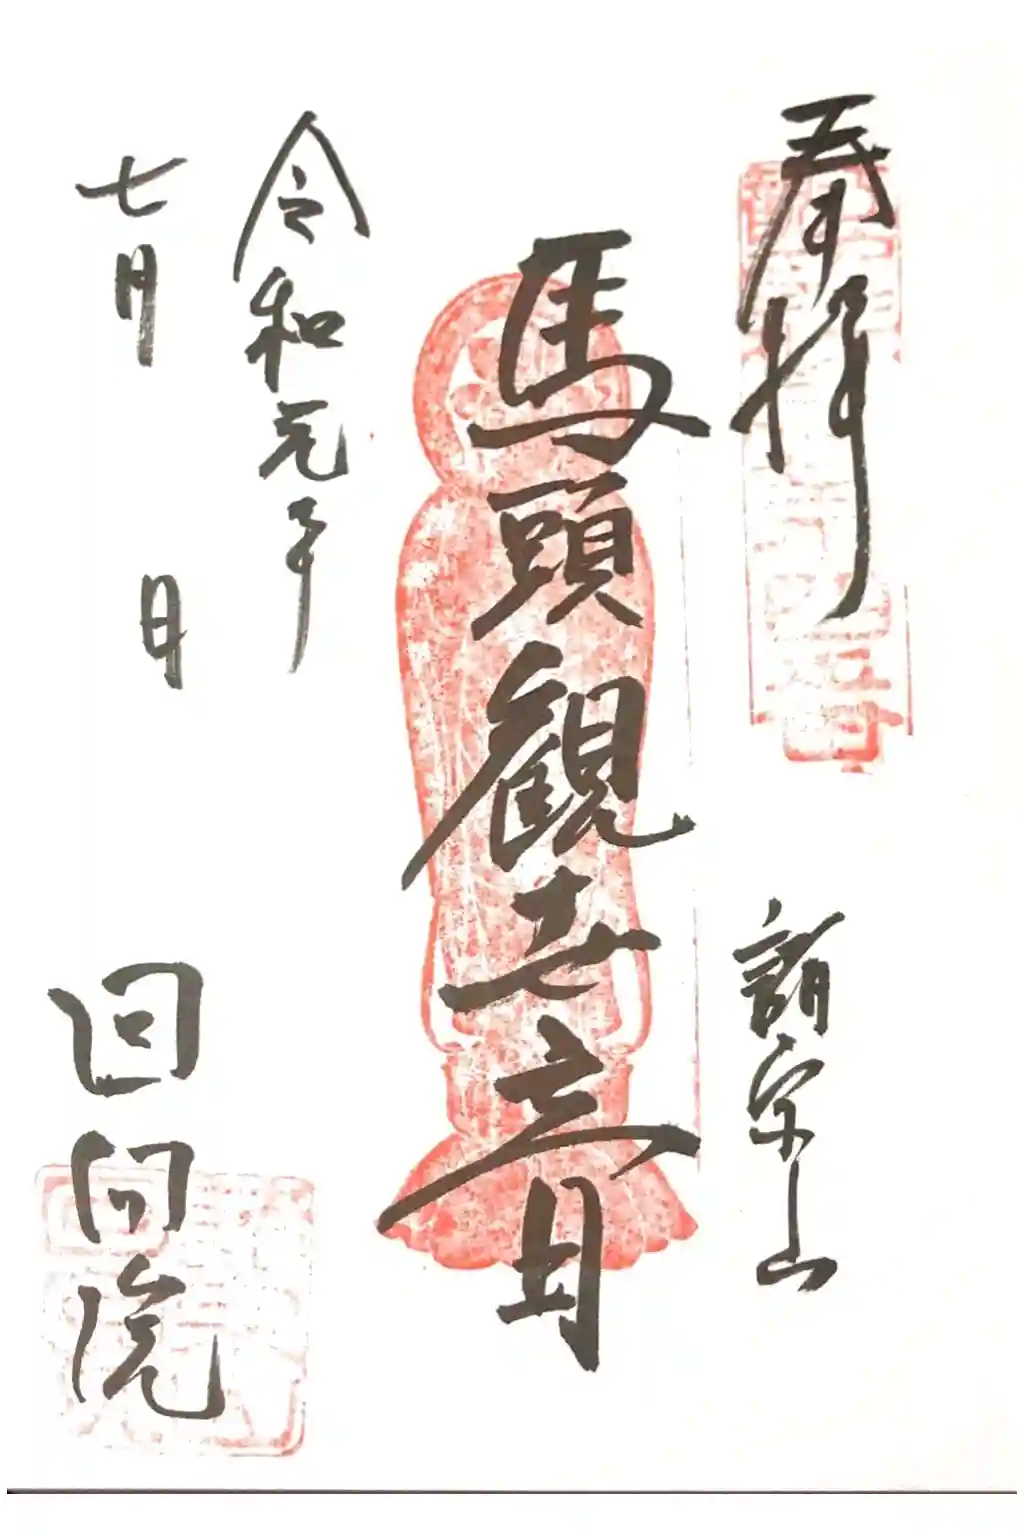 奉拝
諸宗山
馬頭観世音
令和元年
七月 日
回向院